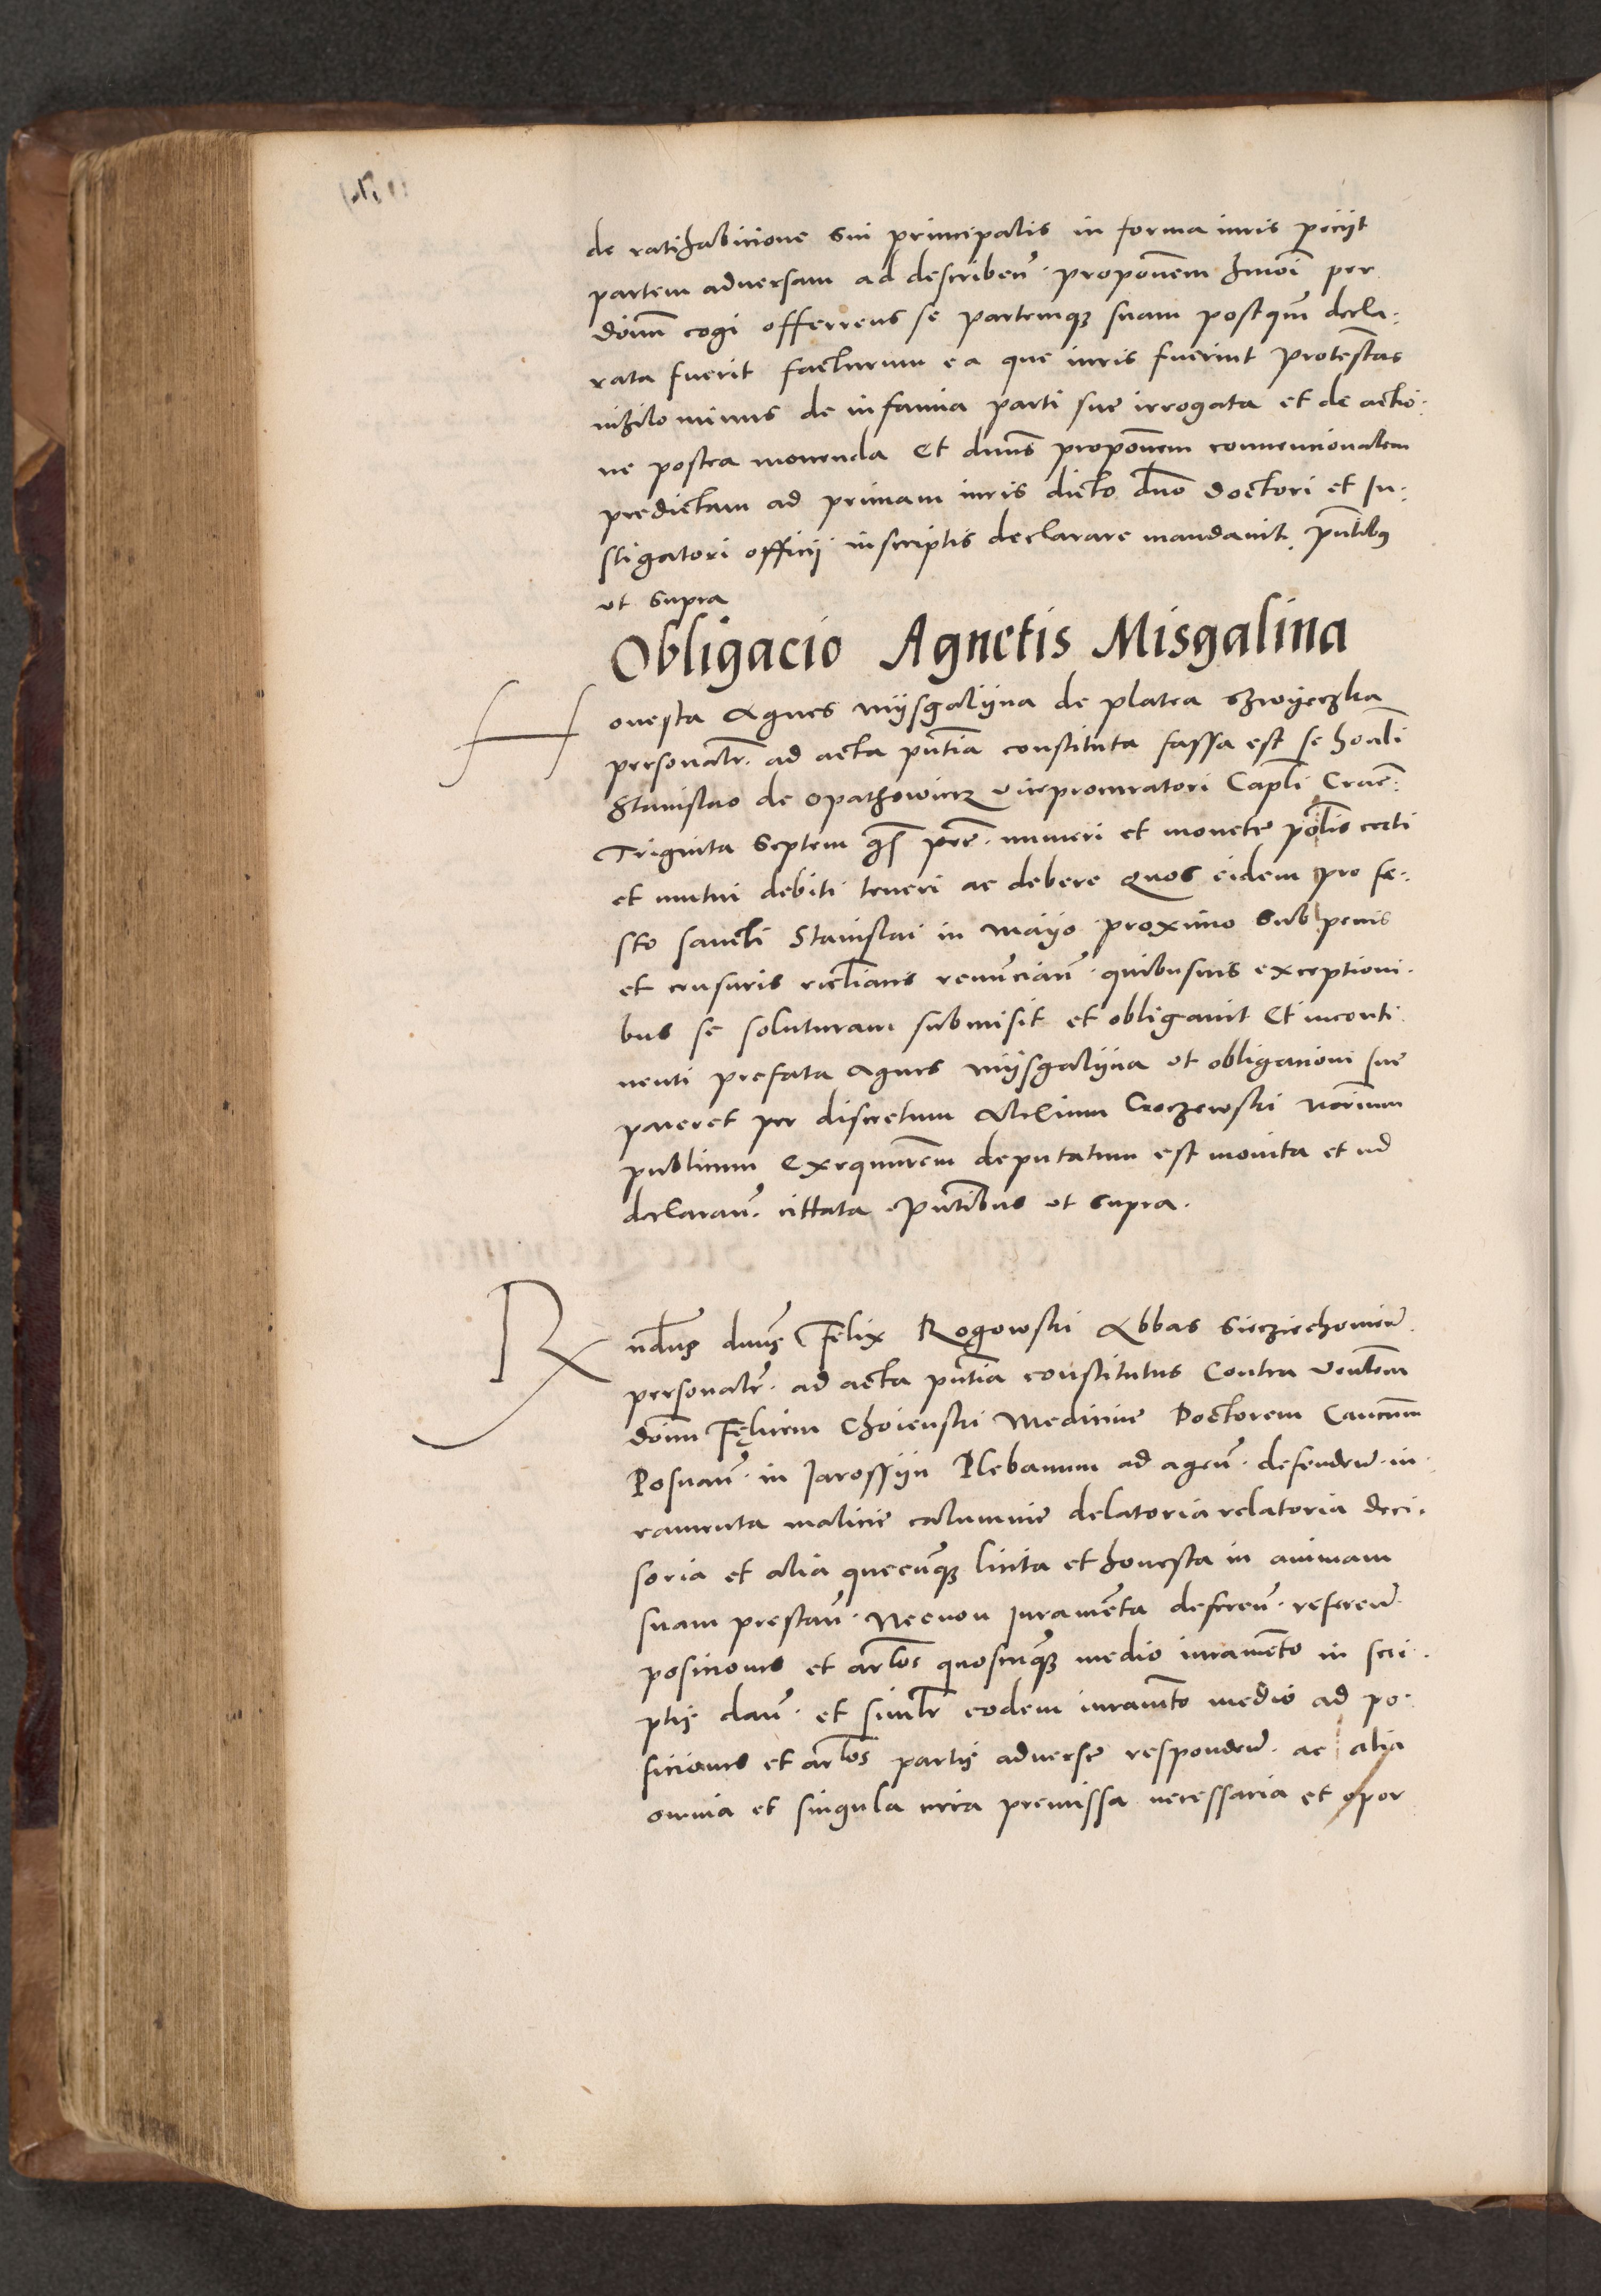 de ratihabicione sui principalis in forma iuris peciit
partem adversam ad describen̄. propōnem hmōi per
dōnm cogi offerrens se partemqꝫ suam postqm̄ decla:
rata fuerit facturum ea que iuris fuerint protestās
nihilominus de infamia parti sue irrogata et de actio:
ne postea movenda Et dnūs propōnem convencionalem
predictam ad primam iuris dicto dn̄o doctori et In:
stigatori officij inscriptis declarare mandavit. pn̄tibus
ut supra
Obligacio Agnetis Misgalina
Honesta Agnes mijsgalijna de platea
personalr̄. ad acta pn̄tia constituta fassa est se honli
Stanislao de Opathowiecz viceprocuratori Capli Cracˉ:
Triginta Septem pec̄. numeri et monete polis certi
et mutui debiti teneri ac debere quos eidem pro fe:
sto sancti Stanislai in mayo proximo sub penis
et censuris ecclianis renunciañ. quibusvis exceptioni:
bus se soluturam submisit et obligavit Et inconti
nenti prefata Agnes mijsgalijna ut obligacioni sue
pareret per discretum Crczewski notrium
publicum Exequutrem deputatum est monita et ad
declarañ. cittata. pn̄tibus ut supra.
Rndus dnus Felix Rogowski Abbas Siecziechovień.
personalr̄. ad acta pn̄tia constitutus Contra venlem
dōnm Felicem Choienski Medicine Doctorem Cancum
Posnañ. in Jarossijn Plebanum ad agen̄. defendeñ. iu:
ramenta malicie calumnie delatoria relatoria deci:
soria et alia quecunqꝫ licita et honesta in animam
suam prestañ. Necnon Juramēta defereñ. refereñ.
posiciones et artlos quoscunqꝫ medio iuramento in scri:
ptis dañ. et simlr̄ eodem iuramto medio ad po:
siciones et artlos partis adverse respondeñ. ac alia
omnia et singula circa premissa necessaria et opor